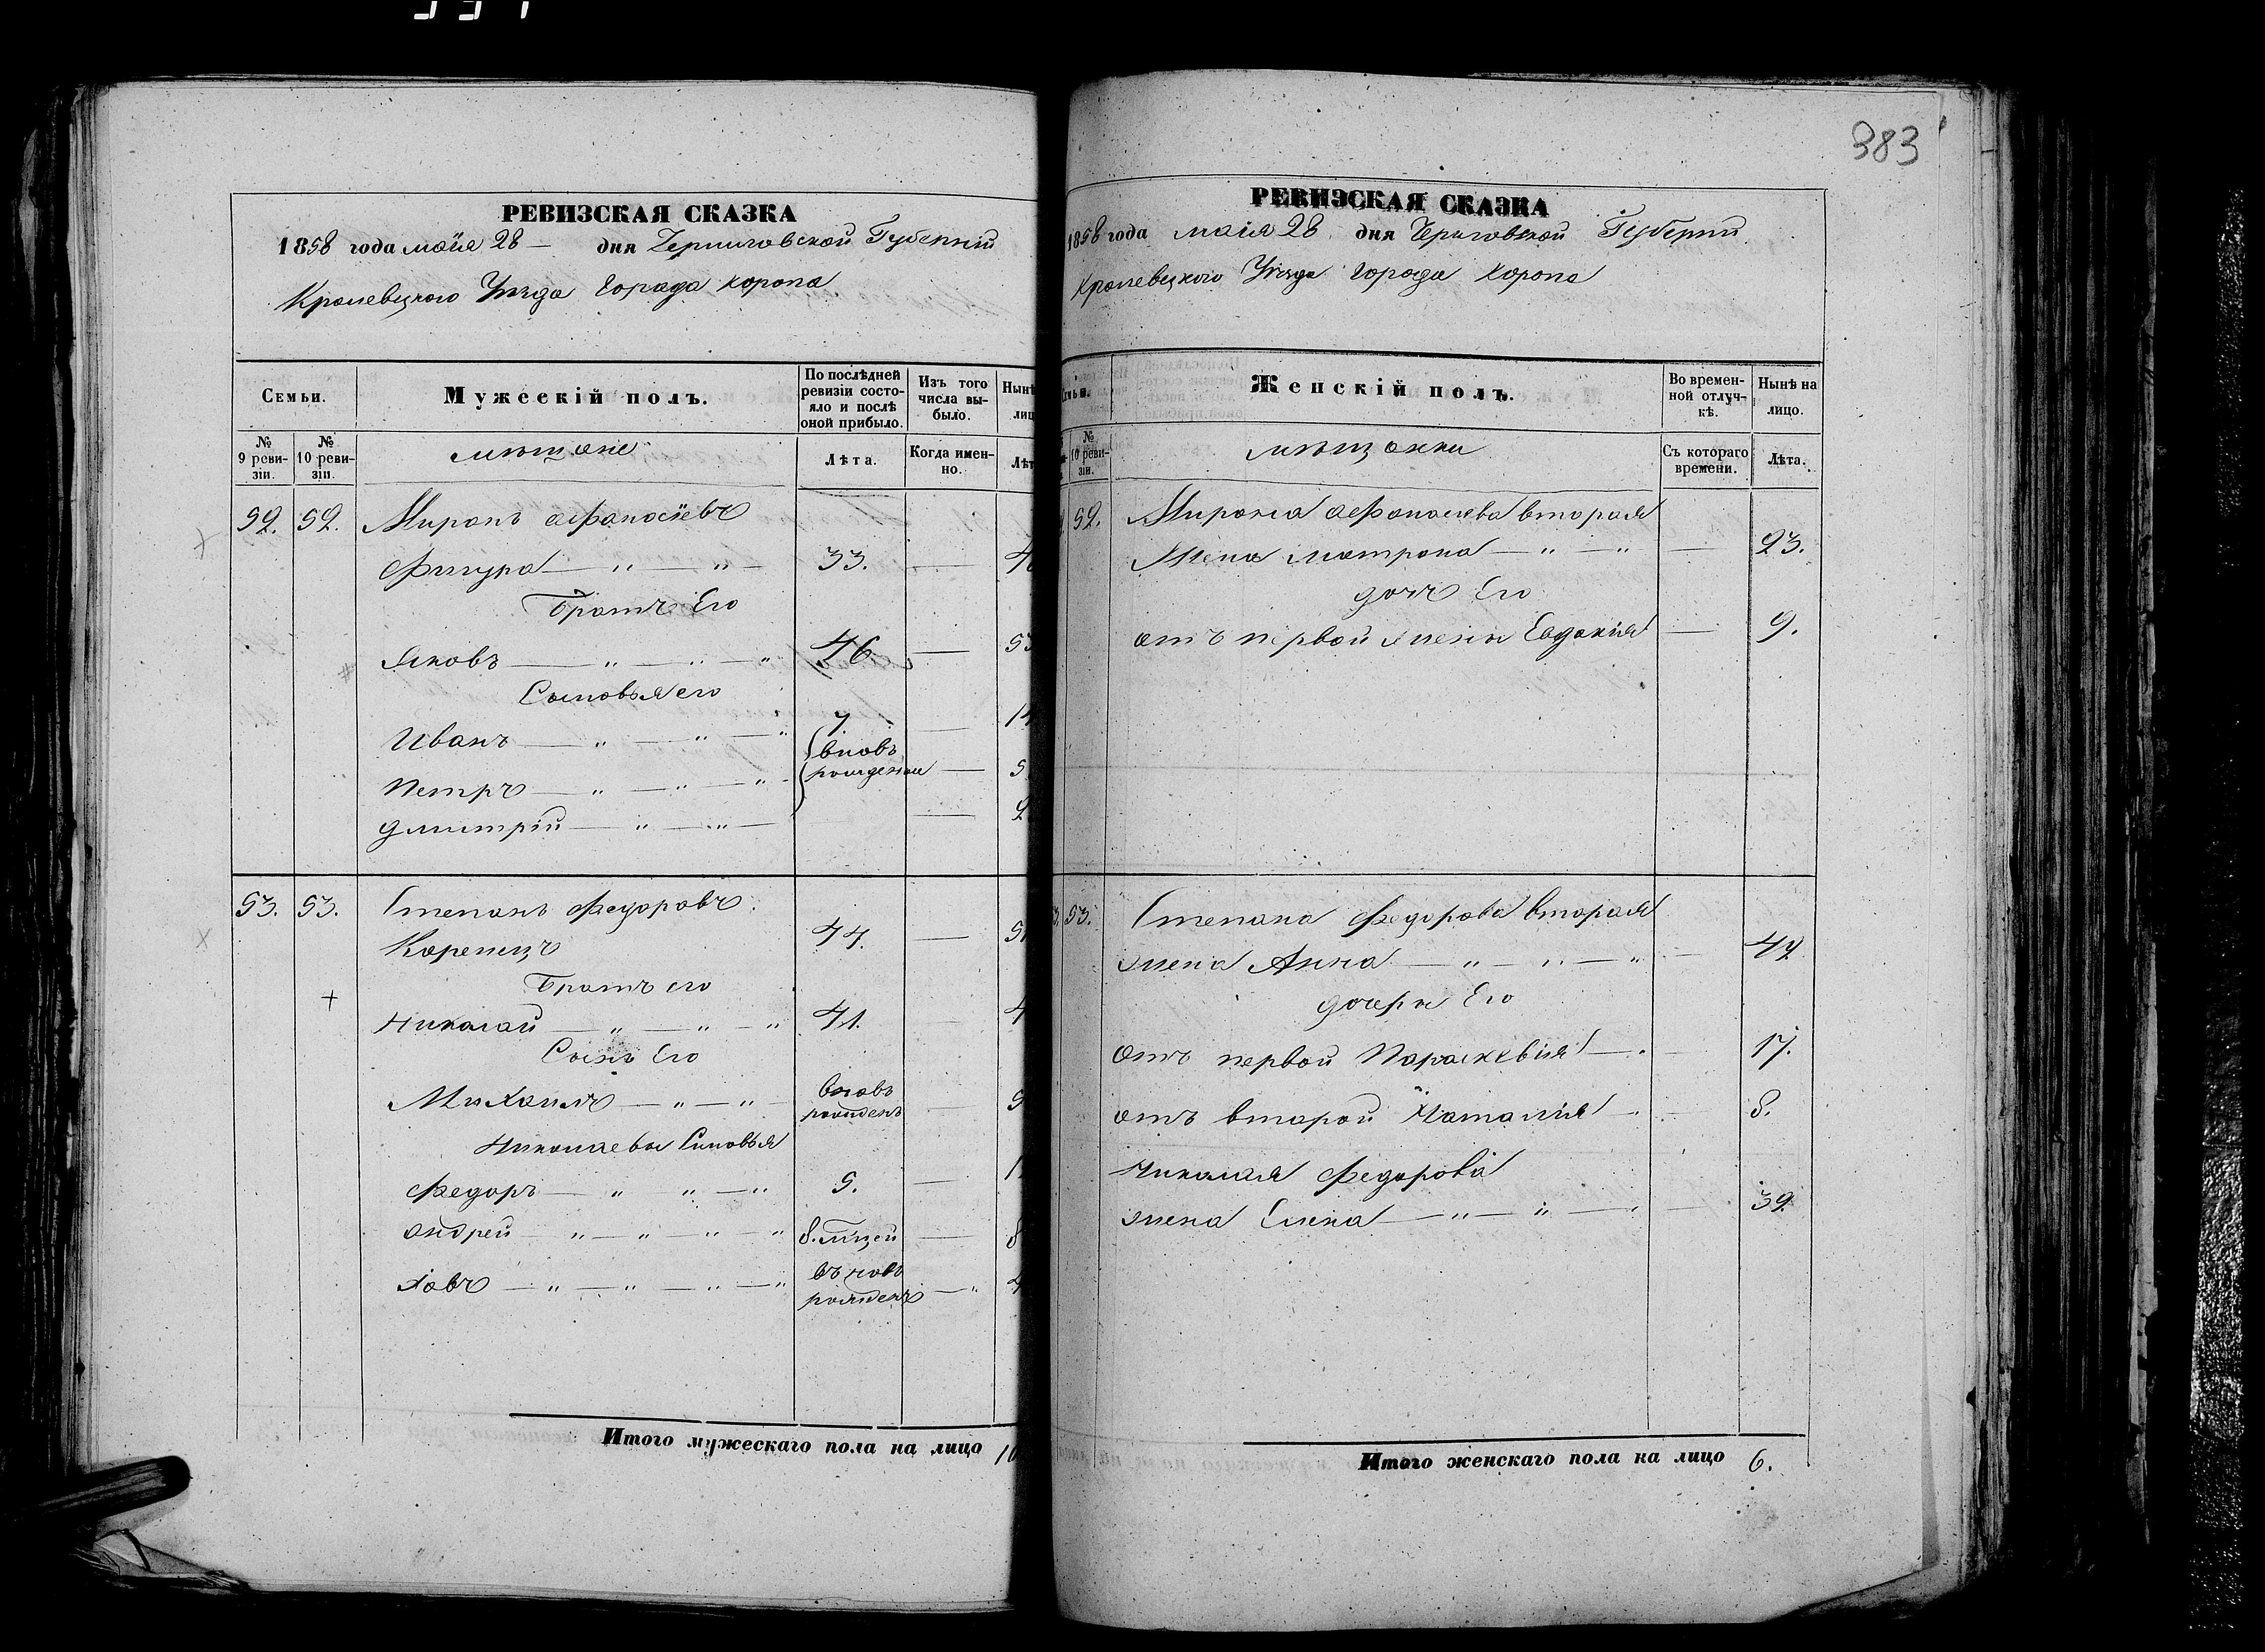 383
РЕВИЗСКАЯ СКАЗКА
1858 года маія 28 — дня Черниговской Губерніи
Кролевецкого Уѣзда Города Коропа
Семьи.
Мужескій полъ.
По послѣдней ревизіи состояло и послѣ оной прибыло.
Изъ того числа выбыло.
Нынѣ
лиц
№ 9 ревизіи.
№ 10 ревизіи.
мѣщане
Лѣта.
Когда именно.
Лѣт
52. 52. Миронъ Афанасіевъ
Фигура — " — " — 33. —
Братъ Его
Яковъ — " — " — " 46. — 53
Сыновья его
Иванъ — " — " — " 7. — 14
Петръ — " — " — " вновь рожденные — 5
Дмитрій — " — " — — 2
53. 53. Степанъ Федоровъ
Корепецъ 44. — 51
Братъ его
Николай — " — " — " 41. — 4
Сынъ Его
Михаилъ — " — " — вновь рожденъ — 9
Николаевы Сыновья
Федоръ — " " — " 5. — 1
Андрей — " — " — " — " 8. мцей — 8
Іовъ — " — " — " — " въновь рожденъ — " 4
Итого мужескаго пола на лицо 10
РЕВИЗСКАЯ СКАЗКА
1858 года маія 28 дня Черниговской Губерніи
Кролевецкого Уѣзда Города Коропа
Семьи.
Женскій полъ.
Во временной отлучкѣ.
Нынѣ на лицо.
№ 10 ревизіи.
мѣщанки
Съ котораго времени.
Лѣта.
52. Мирона Афанасіева вторая
Жена Матрона — " — " — 23.
дочь Его
отъ первой жены Евдокія — 9.
53. Степана Федорова вторая
жена Анна — " — " — " — 42
дочери Его
Отъ первой Параскевія — " — 17.
отъ второй Наталія — " — 8.
Николая Федорова
жена Елена — " — " — " — 39.
Итого женскаго пола на лицо 6.